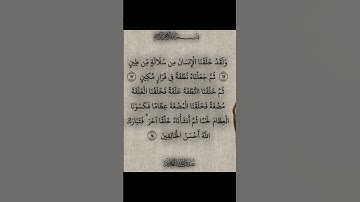 وَلَقَدْ خَلَقْنَا الْإِنسَانَ مِن سُلَالَةٍ مِّن طِينٍ
﴿١٢﴾ ثُمَّ جَعَلْنَاهُ نُطْفَةً فِي قَرَارٍ مَّكِينٍ ﴿١٣﴾
ثُمَّ خَلَقْنَا النُّطْفَةَ عَلَقَةً فَخَلَقْنَا الْعَلَقَةَ
مُضْغَةً فَخَلَقْنَا الْمُضْغَةَ عِظَامًا فَكَسَوْنَا
الْعِظَامَ لَحْمًا ثُمَّ أَنشَأْنَاهُ خَلْقًا آخَرَ ۚ فَتَبَارَكَ
اللَّهُ أَحْسَنُ الْخَالِقِينَ ﴿١٤﴾